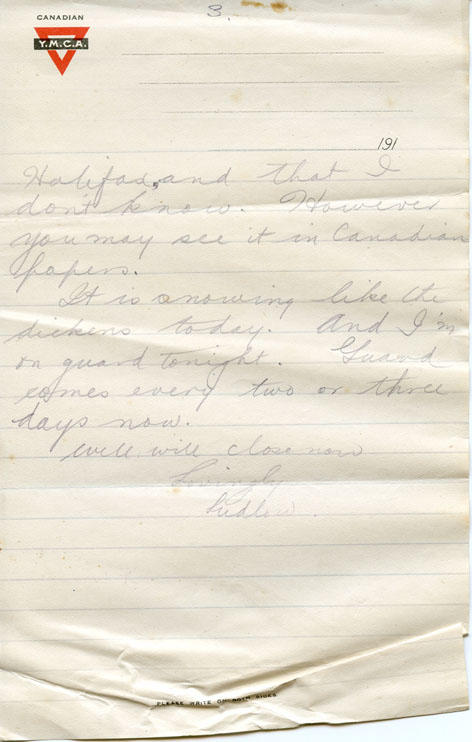 3.
CANADIAN
Y.M.C.A.
191
Halifax, and that I
don't know. However
you may see it in Canadian
papers.
It is snowing like the
dickens today. And I'm
on guard tonight. Guard
comes every two or three
days now.
Well will close now
Lovingly
Ludlow.
PLEASE WRITE ON BOTH SIDES